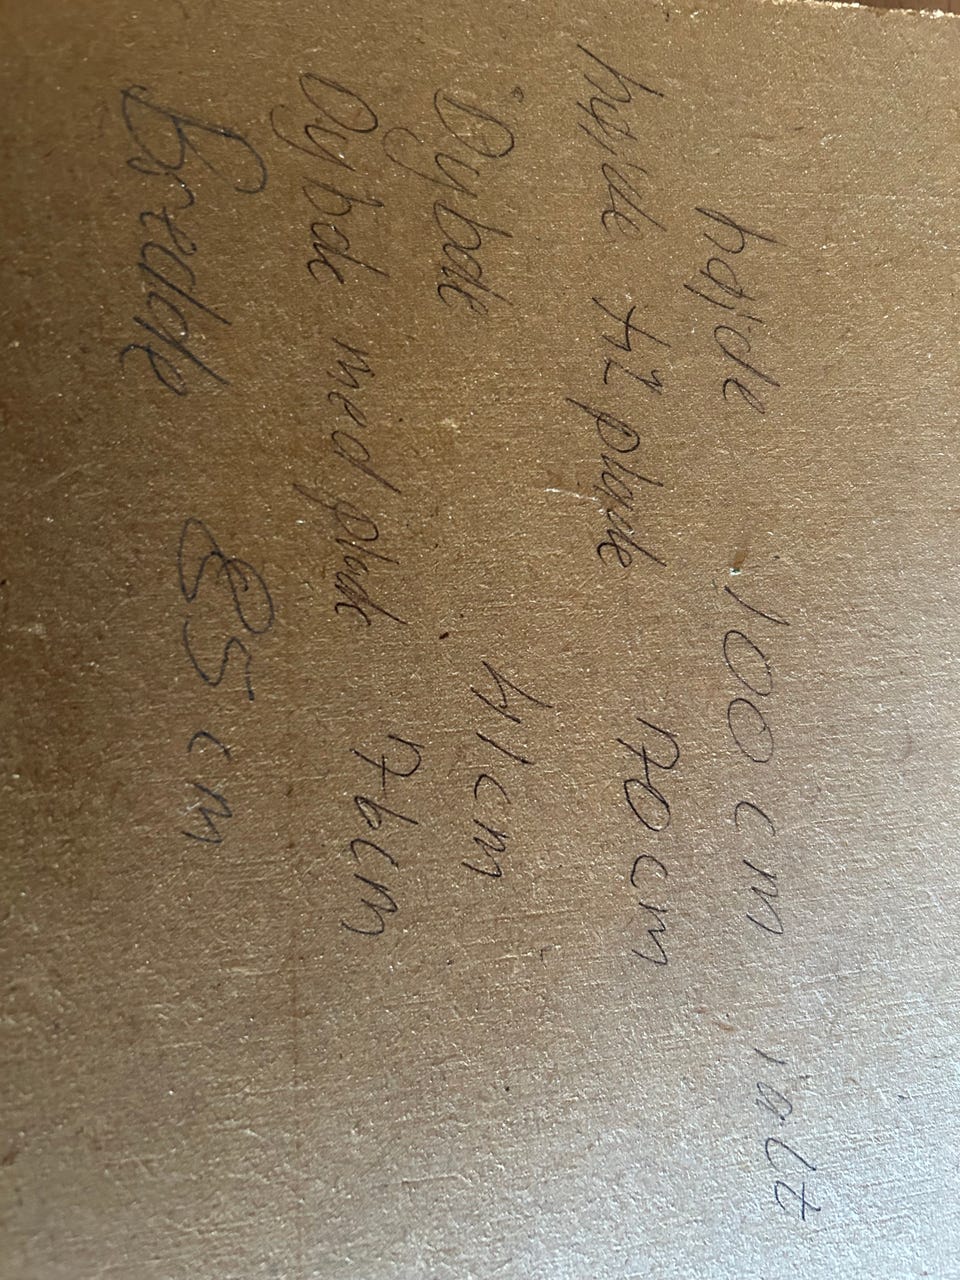 højde 100 cm ialt
højde til plade 70 cm
Dybde 41cm
Dybde med plade 76cm
Bredde 85 cm